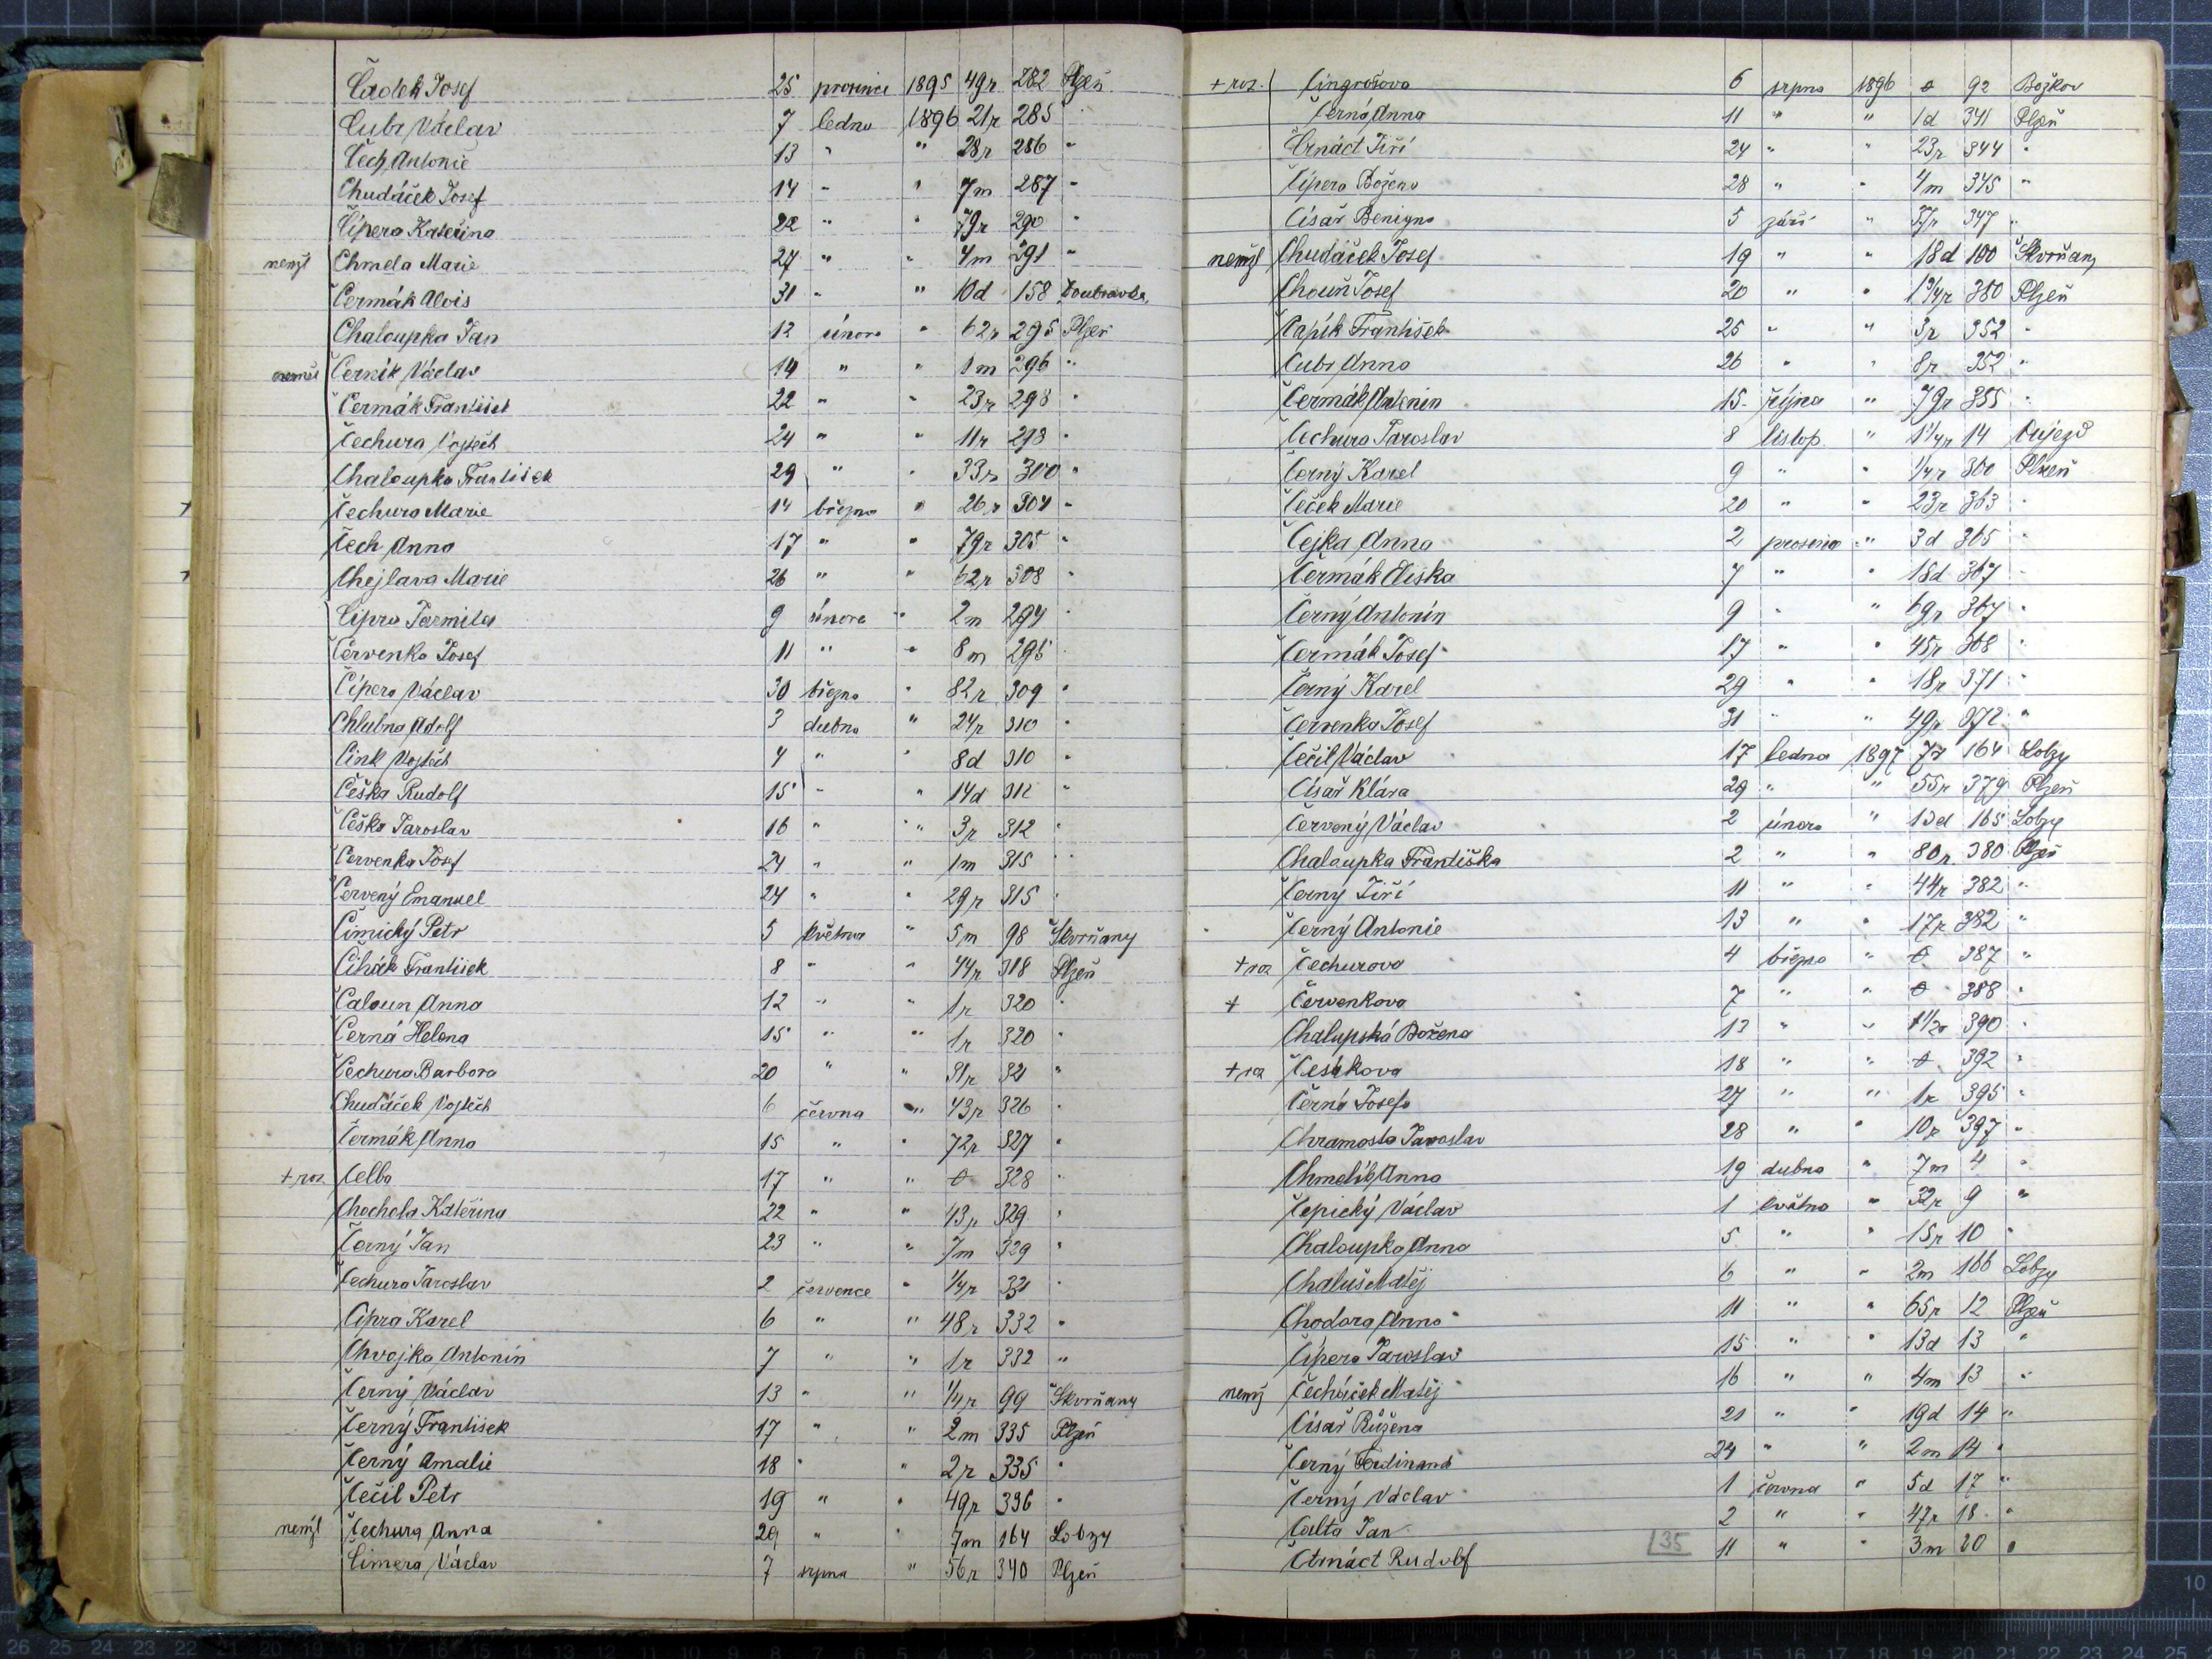 Čadek Josef 25 prosince 1895 49r 282 Plzeň
Cubr Václav 7 ledna 1896 21r 285
Čech Antonie 13 " " 28r 286 "
Chudáček Josef 14 " " 7m 287 "
Čípera Kateřina 22 " " 79r 290 "
nemjl Chmela Marie 27 " " 4m 291 "
Čermák Alois 31 " " 10d 158 Doubravka
Chaloupka Jan 12 února " 62r 295 Plzeň
Černík Václav 14 " " 1m 296 "
Čermák František 22 " " 23r 298 "
Čechura Vojtěch 24 " " 11r 298 "
Chaloupka František 29 " " 33r 300 "
Čechura Marie 14 března " 26r 304 "
Čech Anna 17 " " 79r 305 "
Chejlava Marie 26 " " 62r 308 "
Čipra Jarmila 9 února " 2m 294 "
Červenka Josef 11 " " 8m 295
Čípera Václav 30 března " 82r 309 "
Chlubna Adolf 3 dubna " 24r 310 "
Cink Vojtěch 4 " " 8d 310 "
Češka Rudolf 15 " " 14d 312 "
Češka Jaroslav 16 " " 3r 312 "
Červenka Josef 24 " " 1m 315 "
Červený Emanuel 24 " " 29r 315 "
Čimický Petr 5 května " 5m 98 Škvrňany
Čihák František 8 " " 44r 318 Plzeň
Caloun Anna 12 " " 1r 320 "
Černá Helena 15 " " 1r 320 "
Čechura Barbora 20 " " 31r 321 "
Chudáček Vojtěch 6 června " 43r 326 "
Čermák Anna 15 " " 72r 327 "
+ roz. Celba 17 " " 0 328 "
Chochola Kateřina 22 " " 43r 329 "
Černý Jan 23 " " 7m 329 "
Čechura Jaroslav 2 července " 1/4r 331 "
Čipra Karel 6 " " 48r 332 "
Chvojka Antonín 7 " " 1r 332 "
Černý Václav 13 " " 1/4r 99 Škvrňany
Černý František 17 " " 2m 335 Plzeň
Černý Amalie 18 " " 2r 335 "
Čečil Petr 19 " " 49r 336 "
nemjl Čechura Anna 29 " " 7m 164 Lobzy
Čimera Václav 7 srpna " 56r 340 Plzeň
+ roz. Cingrošova 6 srpna 1896 0 92 Božkov
Černá Anna 11 " " 1d 341 Plzeň
Črnáct Jiří 24 " " 23r 344 "
Čípera Božena 28 " " 4m 345 "
Císař Benigna 5 září " 347 "
nemjl Chudáček Josef 19 " " 18d 100 Škvrňany
Chouň Josef 20 " " 350 Plzeň
Čapík František 25 " " 3r 352 "
Cubr Anna 26 " " 8r 352 "
Čermák Antonin 15 října " 79r 355 "
Čechura Jaroslav 8 listop. " 1 1/4r 14 Oujezd
Černý Karel 9 " " 1/4r 360 Plzeň
Čeček Marie 20 " " 23r 363 "
Čejka Anna 2 prosince " 3d 365 "
Čermák Eliska 7 " " 18d 367 "
Černý Antonín 9 " " 69r 367 "
Čermák Josef 17 " " 45r 368 "
Černý Karel 29 " " 18r 371 "
Červenka Josef 31 " " 49r 372 "
Čečil Václav 17 ledna 1897 7r 164 Lobzy
Císař Klára 29 " " 55r 379 Plzeň
Červený Václav 2 února " 13d 165 Lobzy
Chaloupka Františka 2 " " 80r 380 Plzeň
Černý Jiří 11 " " 44r 382 "
Černý Antonie 13 " " 17r 382 "
+ roz Čechurova 4 března " 0 387 "
+ Červenkova 7 " " 0 388 "
Chalupská Božena 13 " " 390 "
+ roz Česákova 18 " " 0 392 "
Černá Josefa 27 " " 1r 395 "
Chramosta Jaroslav 28 " " 10r 397 "
Chmelík Anna 19 dubna " 7m 4 "
Čepický Václav 1 května " 32r 9 "
Chaloupka Anna 5 " " 15r 10 "
Chaluš Matěj 6 " " 2m 166 Lobzy
Chodora Anna 11 " " 65r 12 Plzeň
Čípera Jaroslav 15 " " 13d 13 "
nemj Čecháček Matěj 16 " " 4m 13 "
Císař Růžena 21 " " 19d 14 "
Černý Ferdinand 24 " " 2m 14 "
Černý Václav 1 června " 5d 17 "
Calta Jan 2 " " 47r 18 "
35 Čtrnáct Rudolf 11 " " 3m 20 "
26 25 24 23 22 21 20 19 18 17 16 15 14 13 12 11 10 9 8 7 6 5 4 3 2 1 cm 0 cm 1 2 3 4 5 6 7 8 9 10 11 12 13 14 15 16 17 18 19 20 21 22 23 24 25
10